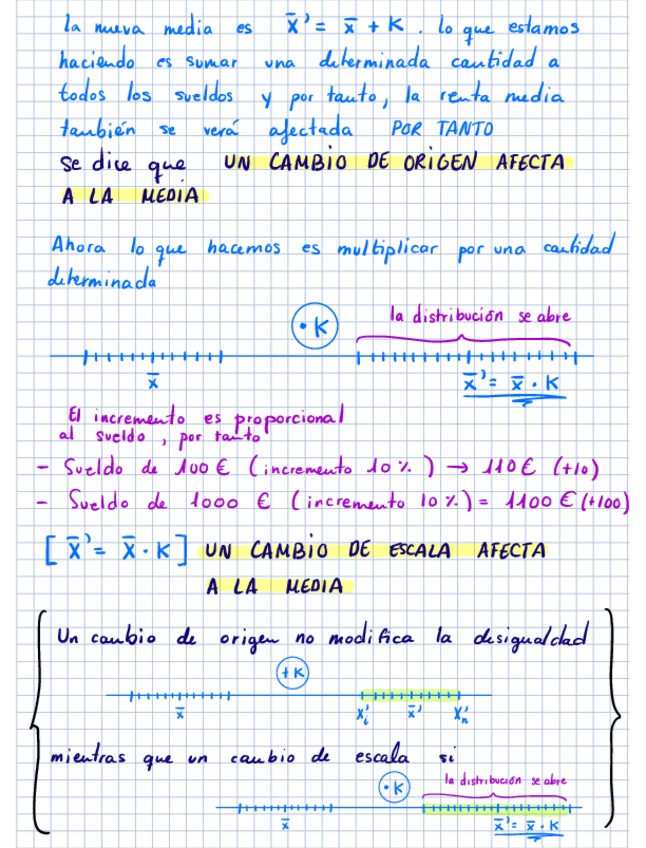 la nueva media es x̄' = x̄ + K. lo que estamos
haciendo es sumar una determinada cantidad a
todos los sueldos y por tanto, la renta media
también se verá afectada POR TANTO
se dice que UN CAMBIO DE ORIGEN AFECTA
A LA MEDIA
Ahora lo que hacemos es multiplicar por una cantidad
determinada
· K
la distribución se abre
x̄
x̄' = x̄ · K
El incremento es proporcional
al sueldo, por tanto
- Sueldo de 100 € (incremento 10 %) → 110 € (+10)
- Sueldo de 1000 € (incremento 10 %) = 1100 € (+100)
[ x̄' = x̄ · K ] UN CAMBIO DE ESCALA AFECTA
A LA MEDIA
Un cambio de origen no modifica la desigualdad
+ K
x̄
X'i x̄' X'n
mientras que un cambio de escala si
· K
la distribución se abre
x̄
x̄' = x̄ · K